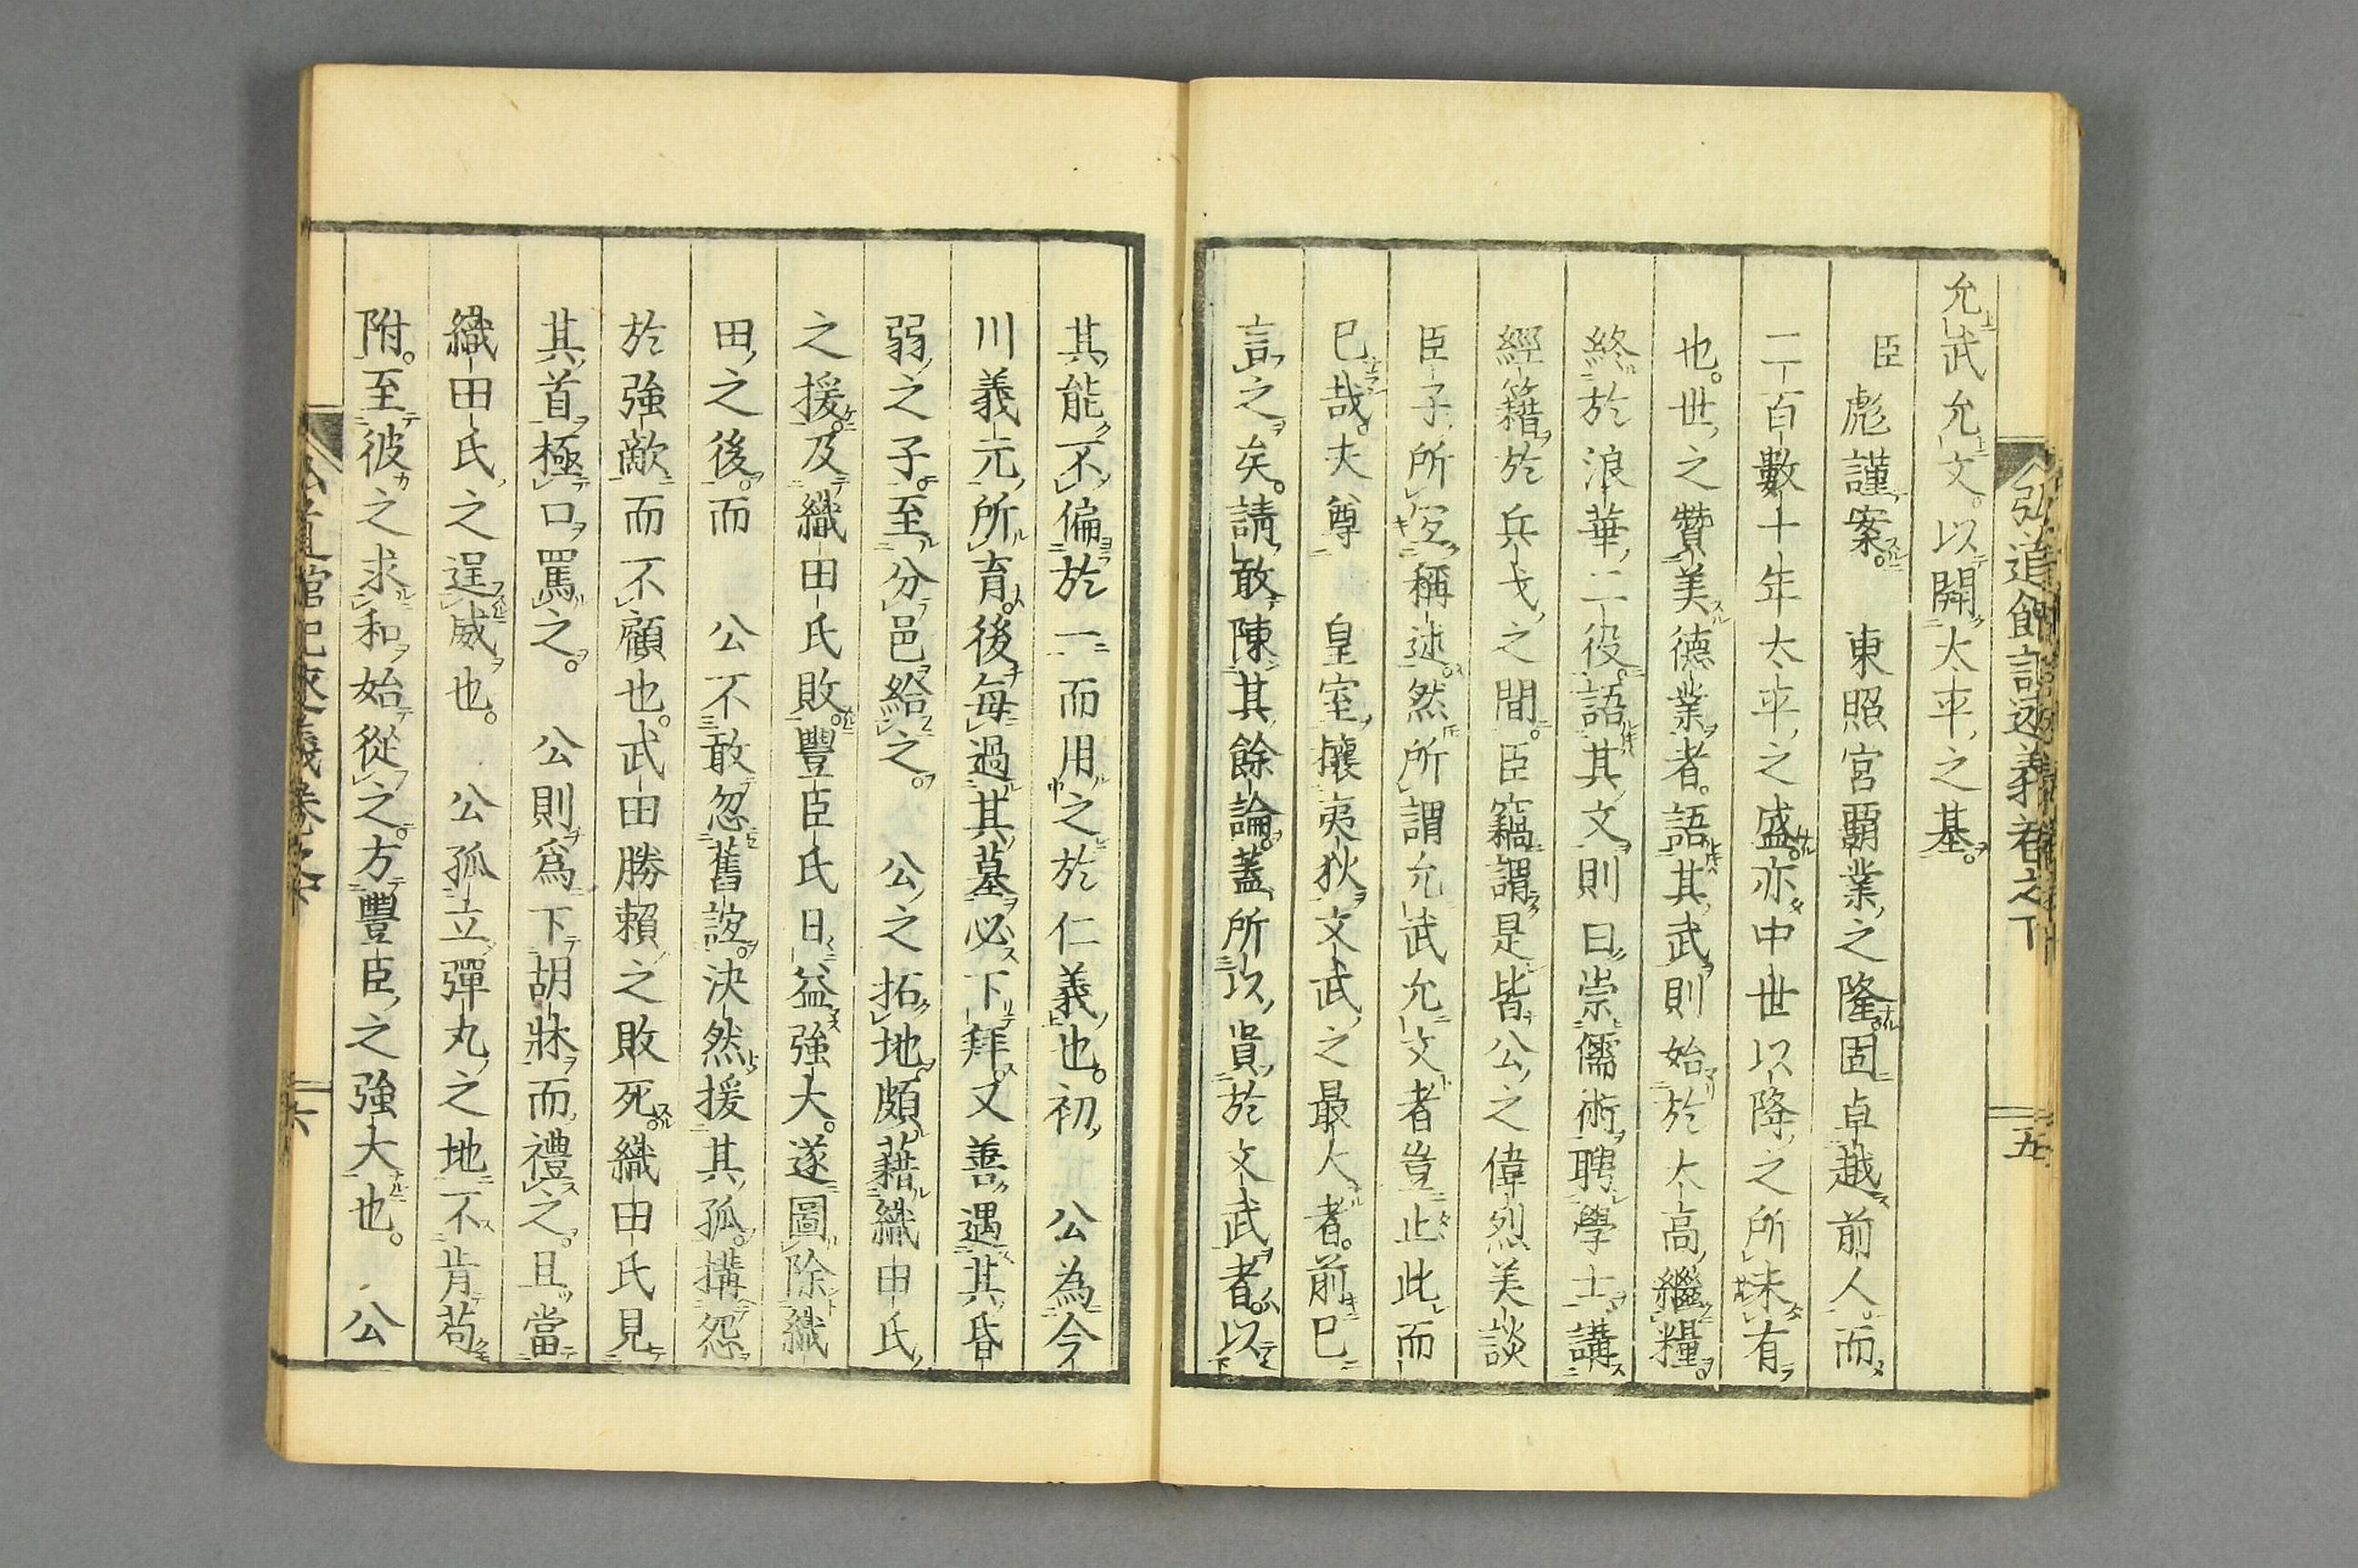 弘道館記述義卷之下
五
允武允文。以開太平之基。
臣彪謹案。東照宮覇業之隆。固卓越前人。而
二百數十年太平之盛。亦中世以降之所未有
也。世之贊美德業者。語其武則始於大高繼糧。
終於浪華二役。語其文則曰崇儒術聘學士。講
經籍於兵戈之間。臣竊謂是皆公之偉烈美談
臣子所宜稱述。然所謂允武允文者豈止此而
已哉。夫尊皇室攘夷狄文武之最大者。前已
言之矣。請敢陳其餘論。蓋所以貴於文武者。以
其能不偏於一而用之於仁義也。初公為今
川義元所育。後每過其墓必下拜。又善遇其昏
弱之子。至分邑給之。公之拓地。頗藉織田氏
之援。及織田氏敗。豐臣氏日益強大。遂圖除織
田之後。而公不敢忽舊誼。決然援其孤。搆怨
於強敵而不顧也。武田勝賴之敗死。織田氏見
其首極口罵之。公則為下胡牀而禮之。且當
織田氏之逞威也。公孤立彈丸之地不肯苟
附。至彼之求和始從之。方豐臣之強大也。公
弘道館記述義卷之下
六